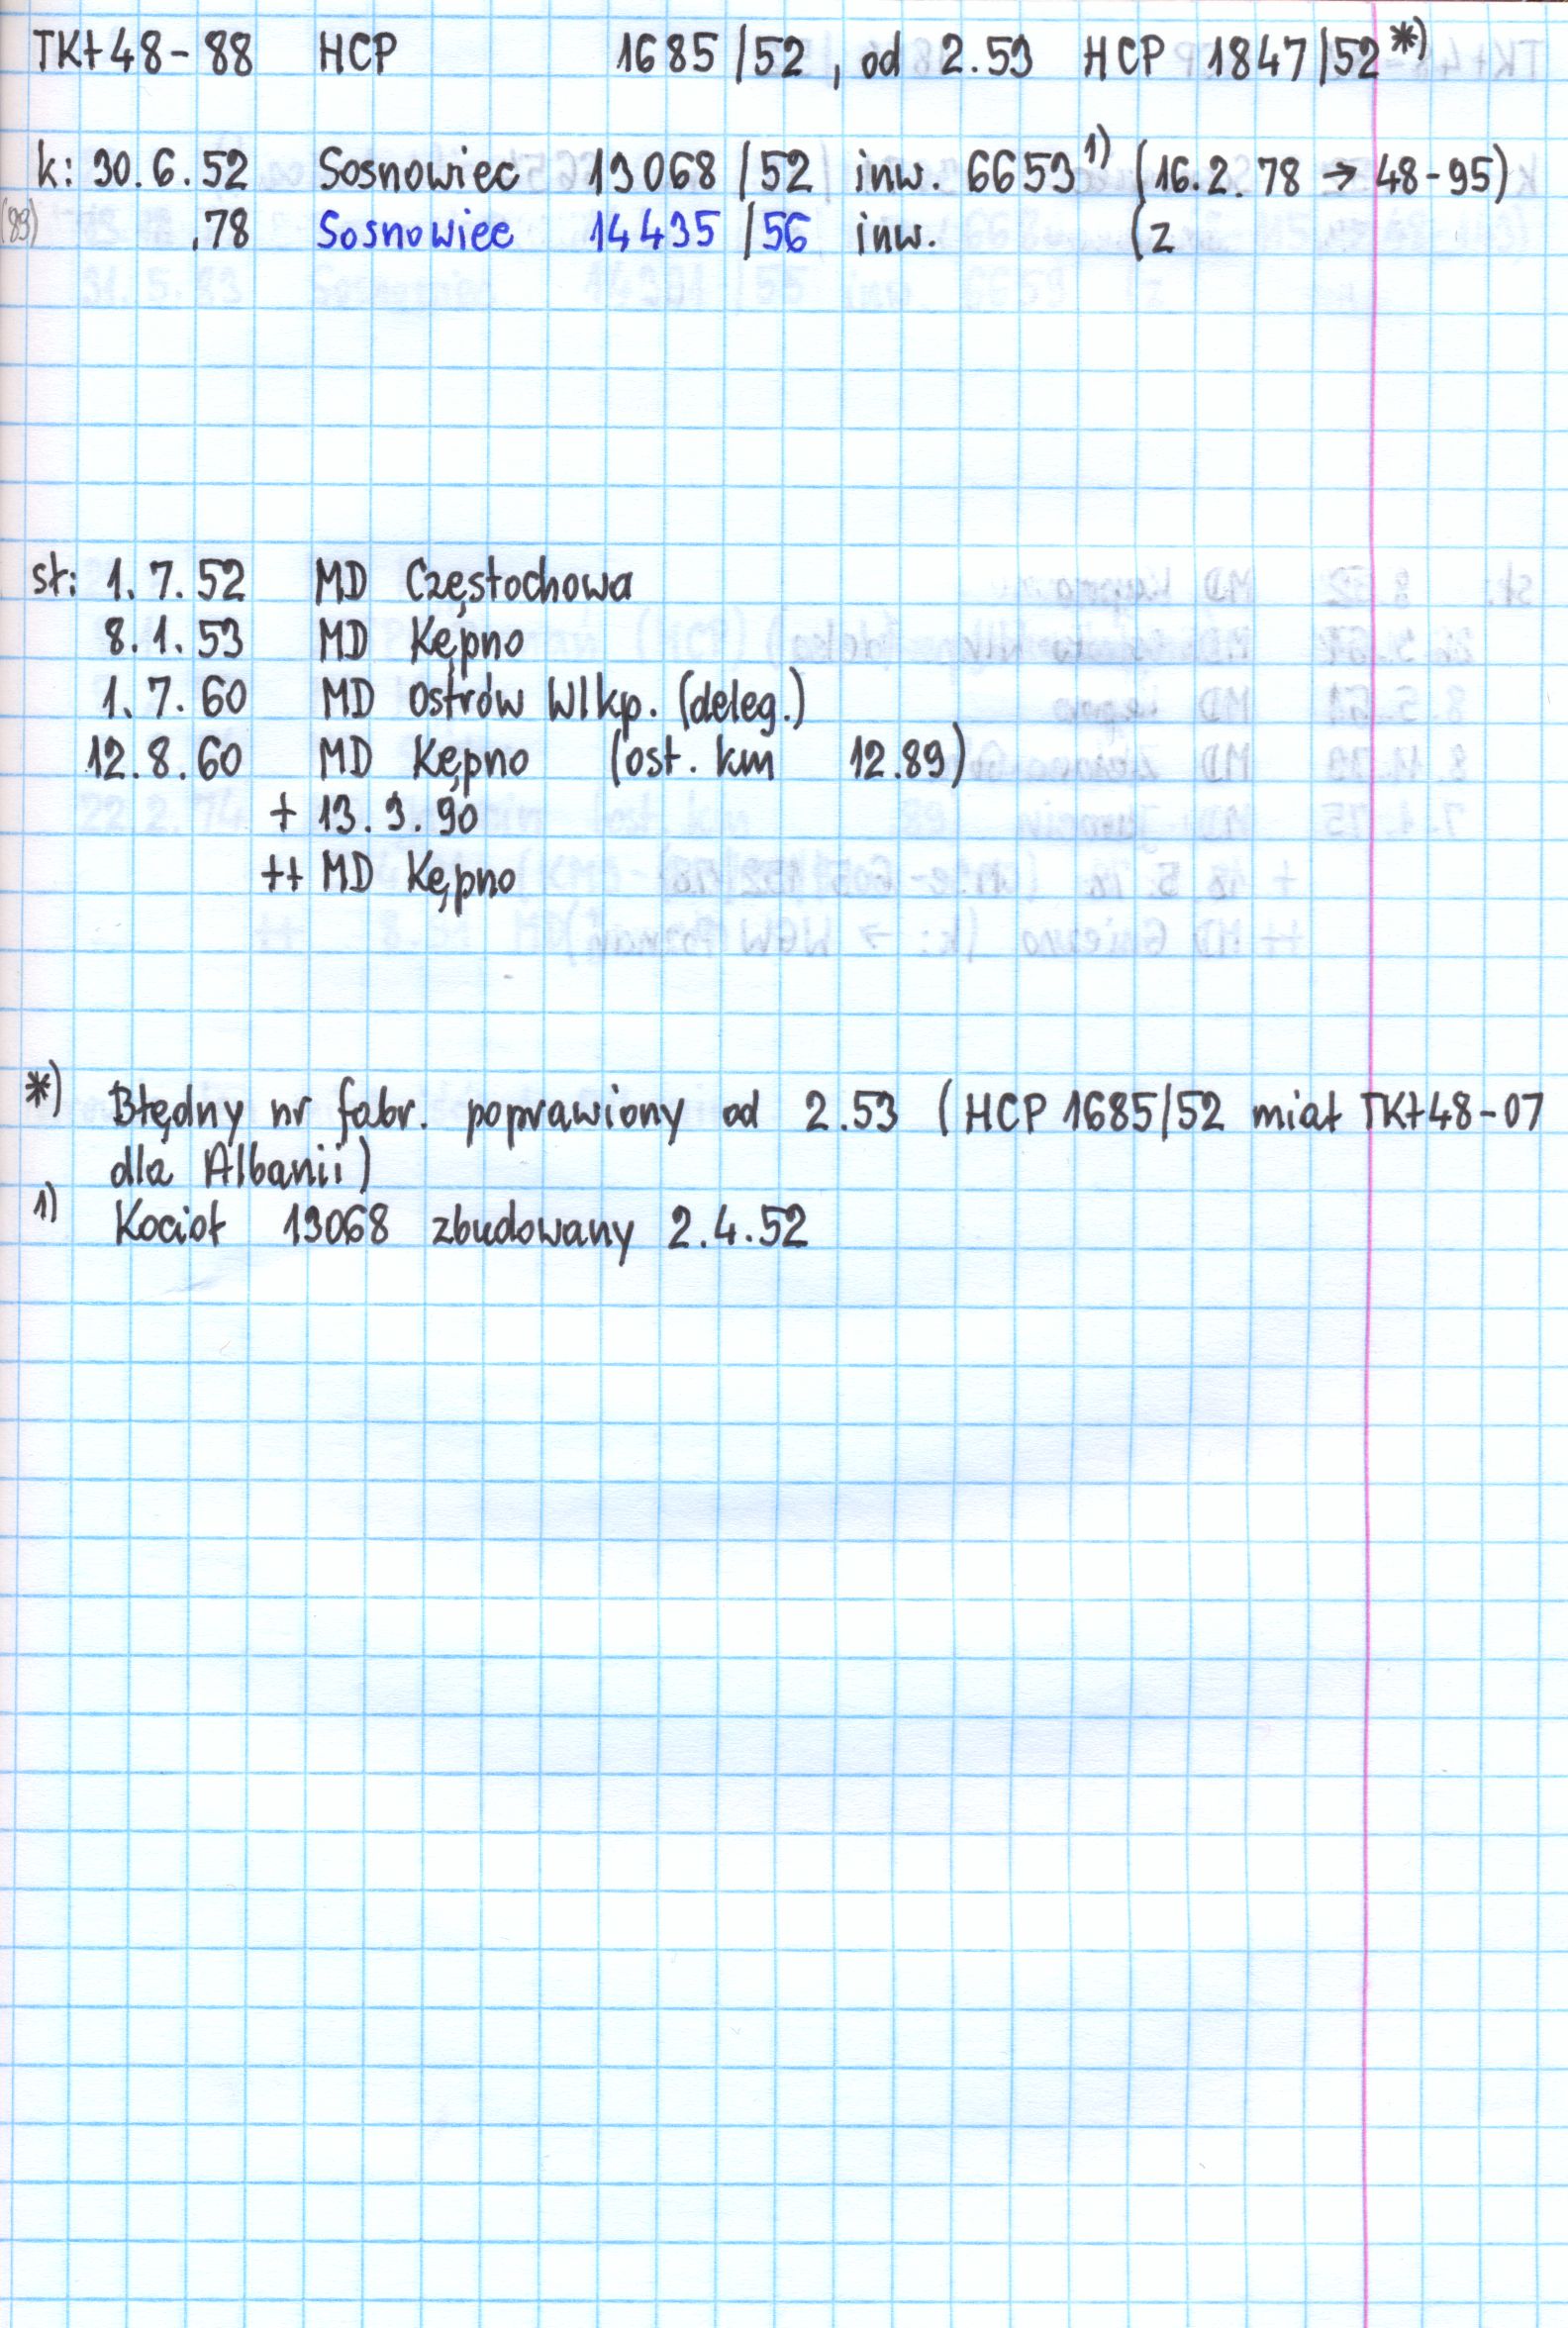 TKt48-88 HCP 1685/52, od 2.53 HCP 1847/52 *)
k: 30.6.52 Sosnowiec 13068/52 inw. 6653 1) (16.2.78 → 48-95)
(89) .78 Sosnowiec 14435/56 inw. (z
st: 1.7.52 MD Częstochowa
8.1.53 MD Kępno
1.7.60 MD Ostrów Wlkp. (deleg.)
12.8.60 MD Kępno (ost. km 12.89)
+ 13.3.90
++ MD Kępno
*) Błędny nr fabr. poprawiony od 2.53 (HCP 1685/52 miał TKt48-07
dla Albanii)
1) Kocioł 13068 zbudowany 2.4.52